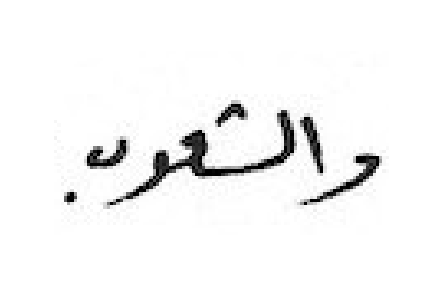 والشعوب